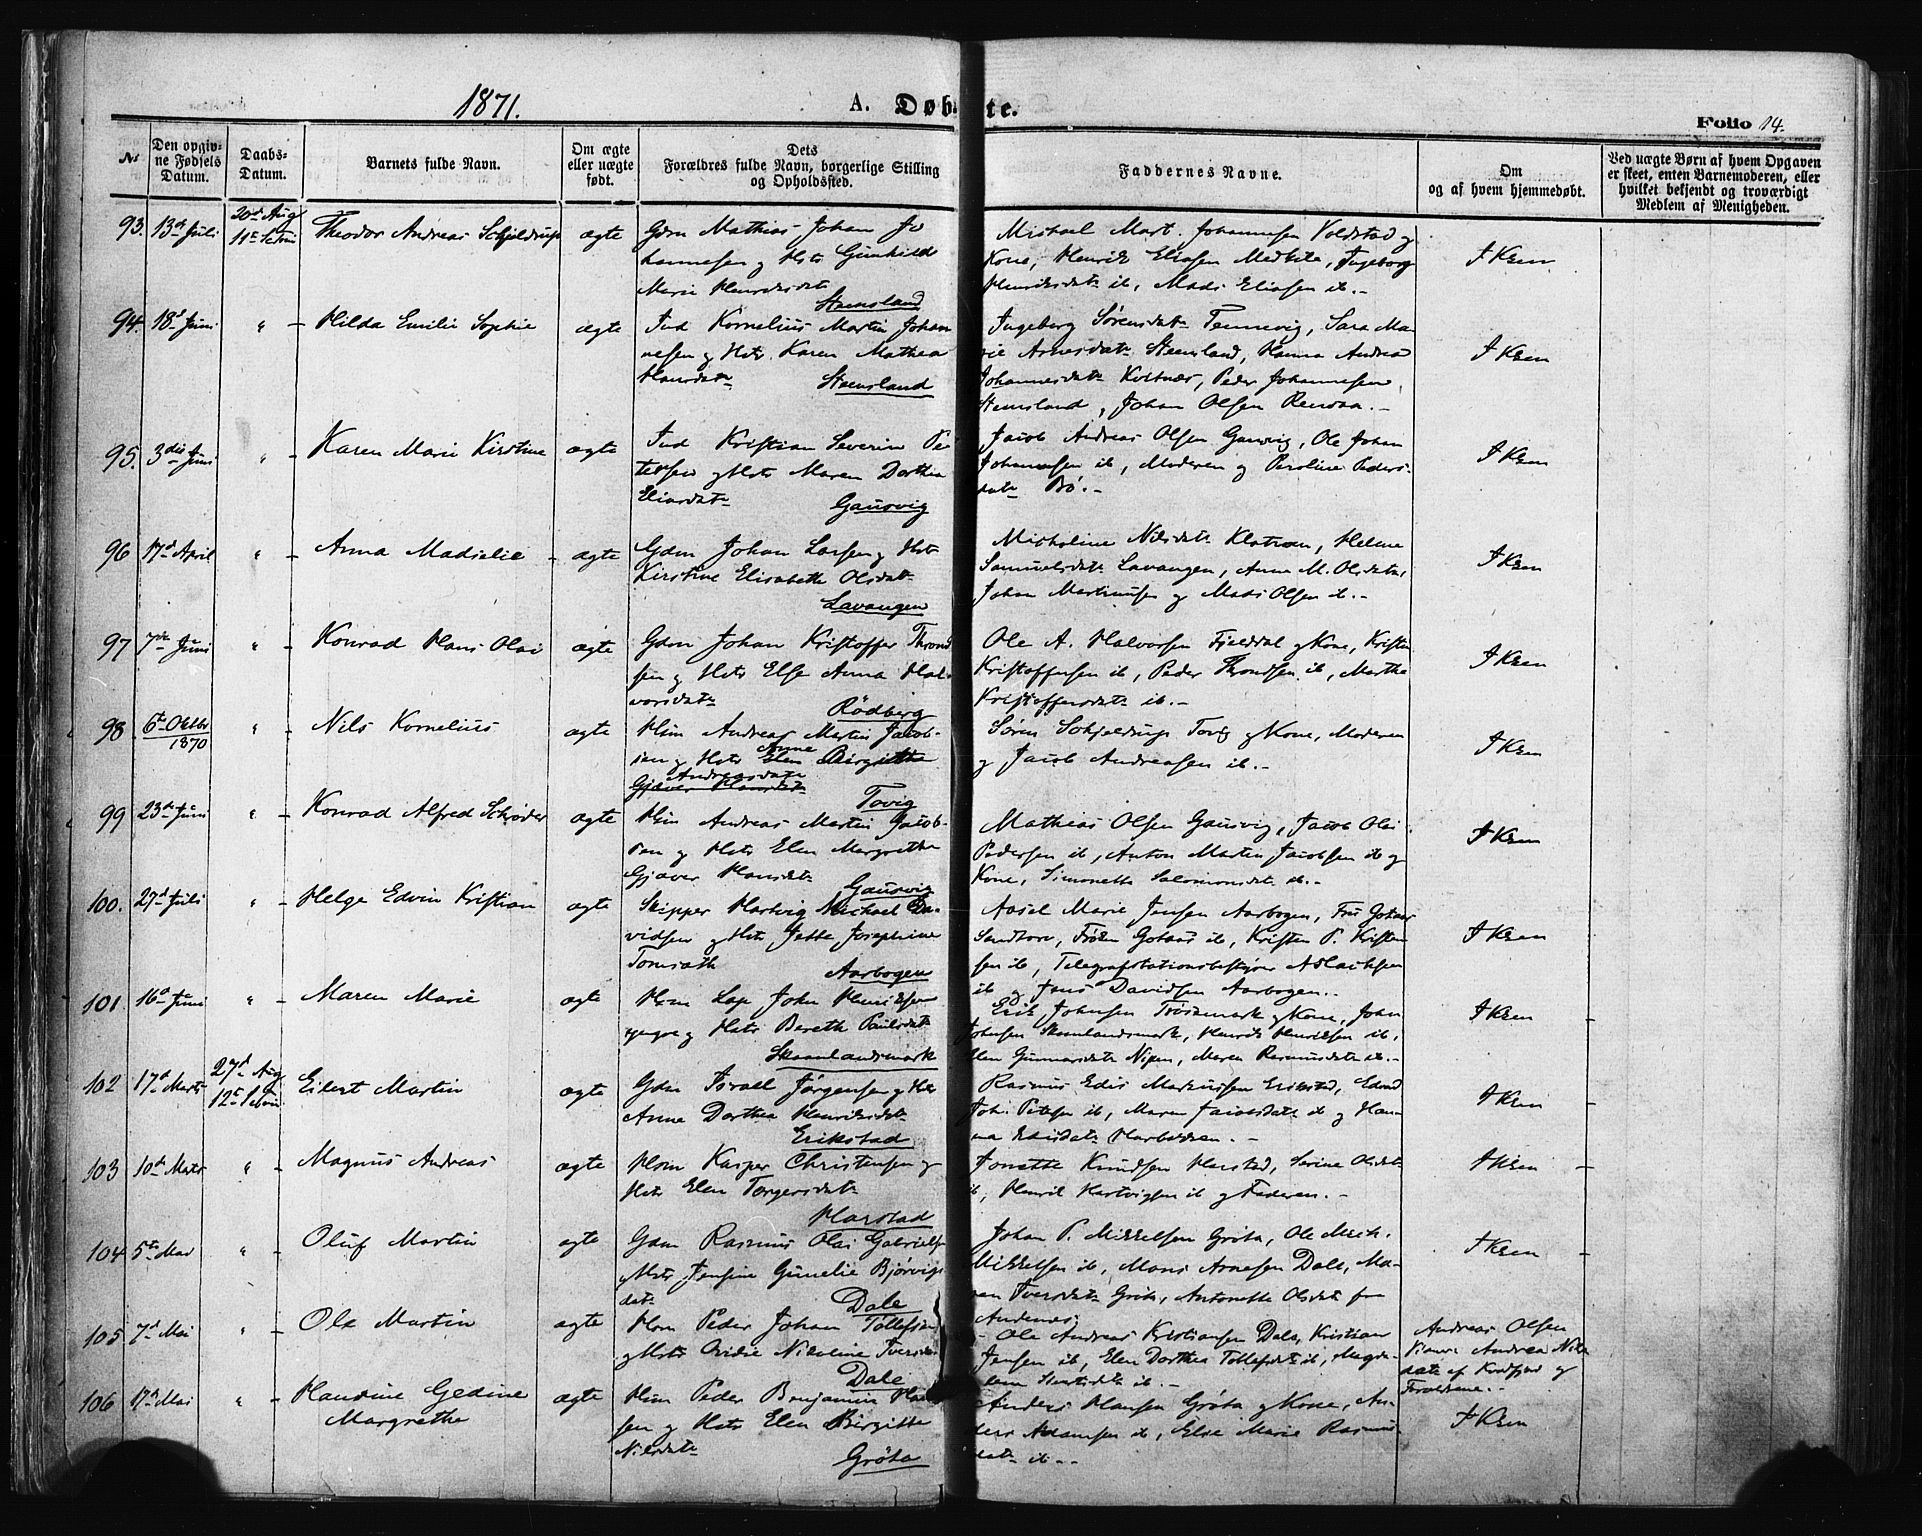 1871.
A. Døbte.
Folio 14.
No
Den opgivne Fødsels Datum.
Daabs-Datum.
Barnets fulde Navn.
Om ægte eller uægte født.
Dets Forældres fulde Navn, borgerlige Stilling og Opholdssted.
Faddernes Navne.
Om og af hvem hjemmedøbt.
Ved uægte Børn af hvem Opgaven er skeet, enten Barnemoderen, eller hvilket bekjendt og troværdigt Medlem af Menigheden.
93. 13d Juli 20d Aug Theodor Andreas Schjeldrup ægte Gdm Mathias Johan Jo
hannesen og Hstr Gunhild
Marie Henriksdatr
Steensland
Michael Mart. Johannesen Voldstad og
Kone, Henrik Eliasen Medkila, Ingeborg
Henriksdatr ib, Mads Eliasen ib.-
I Kken
94. 18d Juni " - Hilda Emilie Sophie ægte Ind Kornelius Martin Johan
nesen og Hstr Karen Mathea
Hansdatr Steensland
Ingeborg Sørensdatr Tennevig, Sara Ma-
rie Arnesdatr Steensland, Hanna Andrea
Johannesdatr Kvitnæs, Peder Johannesen
Steensland, Johan Olsen Renaa.-
I Kken
95. 3die Juni " - Karen Marie Kirstine ægte Ind Kristian Severin Pe
tersen og Hstr Maren Dorthea
Eliasdatr Gausvig
Jacob Andreas Olsen Gausvig, Ole Johan
Johannesen ib, Moderen og Peroline Peders-
datr Bø.-
I Kken
96 17d April " - Anna Madselie - ægte Gdm Johan Larsen og Hstr
Kirstine Elisabeth Olsdatr
Lavangen
Micholine Nilsdatr, Helene
Samuelsdatr Lavangen, Anne M. Olsdatr,
Johan Martinusen og Mads Olsen ib.-
I Kken
97 7de Juni " - Konrad Hans Olai ægte Gdm Johan Kristoffer Thrond
sen og Hstr Else Anna Hal
vorsdatr Rödberg
Ole A. Halvorsen Fjelddal og Kone, Kristen
Kristoffersen ib, Peder Throndsen ib, Marthe
Kristoffersdatr ib.-
I Kken
98 6te Oktbr 1870 " - Nils Kornelius ægte Hsm Andreas Martin Jacob-
sen og Hstr Elen Anne Birgitthe
Andreasdatr
Gjæver Hansdatr
Tovig
Søren Schjeldrup Tovig og Kone, Moderen
og Jacob Andreassen ib.-
I Kken
99 23de Juni " - Konrad Alfred Schrøder ægte Hsm Andreas Martin Jacob-
sen og Hstr Elen Margrethe
Gjæver Hansdatr Gausvig
Mathias Olsen Gausvig, Jacob Olai
Pedersen ib, Anton Martin Jacobsen ib og
Kone, Simonette Salomonsdatr ib.-
I Kken
100. 27d Juli " - Helge Edvin Kristian ægte Skipper Hartvig Michael Da-
vidsen og Hstr Jette Josephine
Tomrath Aarbogen
Axsel Marie Jensen Aarbogen, Fru Gotaas
Sandtorv, Frøken Gotaas ib, Kristen P. Kristen
sen ib, Telegrafstationsbestyrer Aslachsen
ib og Jens Davidsen Aarbogen.-
I Kken
101 16d Juni " - Maren Marie ægte Hsm Lap John Henriksen
yngre og Hstr Bereth Paulsdatr
Skaanlandsmark
Erik Johnsen Tovsmark og Kone, John
Johnsen Skaanlandsmark, Henrik Henriksen ib,
Elen Gunnarsdatr Nipen, Maren Rasmusdatr ib.-
I Kken
102 17d Marts 27d Aug Eilert Martin ægte Gdm Israel Jørgensen og Hstr
Anne Dorthea Henriksdatr
Erikstad
Rasmus Edis Markussen Erikstad, Edvard
Joh. Petersen ib, Maren Jacobsdatr ib og Han-
na Edisdatr Harbolden.-
I Kken
103 10de Marts " - Magnus Andreas ægte Hsm Kasper Christensen og
Hstr Elen Torgersdatr
Harstad
Jonette Knudsen Harstad, Serine Olsdatr
ib, Henrik Hartvigsen ib og Faderen.-
I Kken
104 5te Mai " - Oluf Martin ægte Gdm Rasmus Olai Gabrielsen
og Hstr Jensine Gunelie Bjørvigs
datr Dale
Johan P. Mikkelsen Grøta, Ole Mich.
Mikkelsen ib, Hans Arnesen Dale, Ma-
ren Iversdatr Grøta, Antonette Olsdatr fra
Andenæs
I Kken
105 7d Mai " - Ole Martin ægte Hsm Peder Johan Tollefsen
og Hstr Ovidie Nikoline Iversdatr
Dale
Ole Andreas Kristiansen Dale, Kristian
Jensen ib, Elen Dorthea Tollefsdatr ib, Magda-
lena ib.-
Andreas Olsen
Andrea Nils
datr af Kvæfjord og
Forældrene.-
106 17d Mai " - Haudine Gedine
Margrethe
ægte Hsm Peder Benjamin Han
sen og Hstr Elen Birgitte
Nilsdatr Grøta
Anders Hansen Grøta og Kone, An-
ders Adamsen ib, Else Marie Rasmus
datr ib.-
I Kken